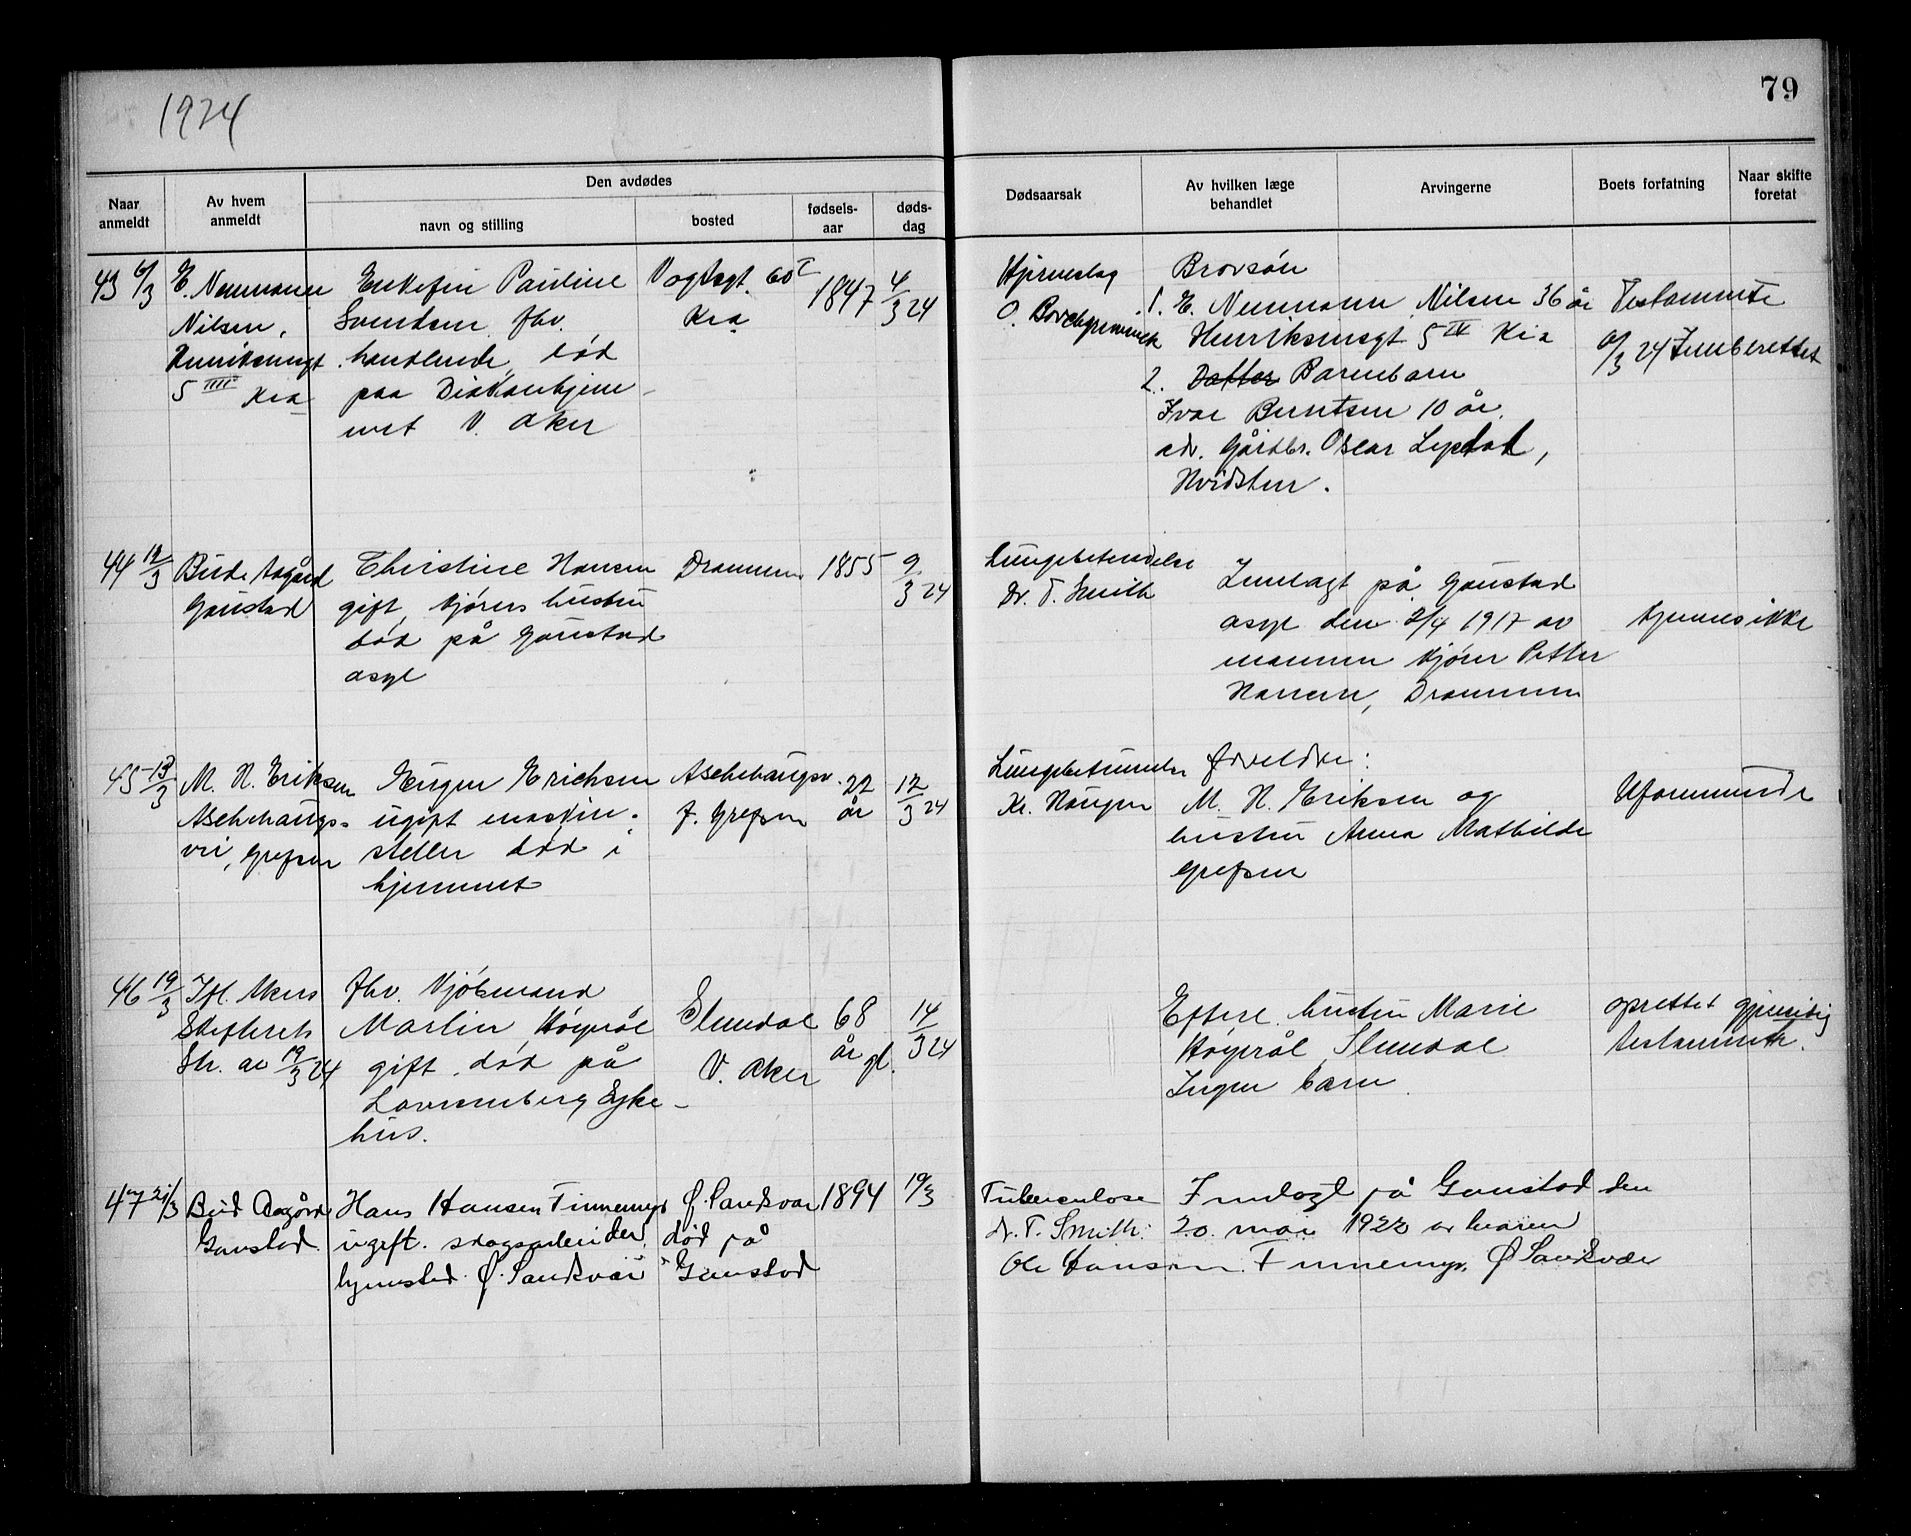 1924
79
Naar anmeldt
Av hvem anmeldt
Den avdødes
navn og stilling
bosted
fødselsaar
dødsdag
Dødsaarsak
Av hvilken læge behandlet
Arvingerne
Boets forfatning
Naar skifte foretat
43 6/3
E. Neumann
Nilsen,
Henriksensgt.
5 IIII Kra
Enkefru Pauline
Svendsen fhv.
handlende, død
paa Diakonhjem-
met V. Aker
Vogtsgt. 60 I
Kra
1847
4/3 24
Hjerneslag
O.
Brorsøn
1. E. Neumann Nilsen 36 år
Henriksensgt 5 IV Kra
2. Datter Barnebarn
Ivar Berntsen 10 år.
adr. Gårdbr. Oscar
Hvidsten.
Testamente
6/3 24 Innberettet
44 12/3
Bud. Aagård
Gaustad
Christine Hansen
gift, kjørers hustru
død på Gaustad
asyl
Drammen
1855
9/3 24
Lungebetendelse
Dr. T. Smith
Innlagt på Gaustad
asyl den 2/4 1917 av
mannen kjører Petter
Hansen, Drammen
kjennes ikke
45 13/3
M. H. Eriksen
Aschehougs-
vei, Grefsen
Eugen Erichsen
ugift maskin-
steller død i
hjemmet
Aschehougsv.
f. Grefsen
22
år
12/3 24
Kr. Haugen
forældre:
M. H. Eriksen og
hustru Anna Mathilde
Grefsen
Uformuende
46 19/3
Ifl. Akers
Skifterets
Skr. av 19/3 24
fhv. kjøbmand
Martin Høyerål
gift. død på
Lovisenberg Syke-
hus.
Slemdal
V. Aker
68
år gl.
14/3 24
Efterl. hustru Marie
Høyerål Slemdal
Ingen barn
oprettet gjensidig
testamente.
47 21/3
Bud Aagård
Gaustad.
Hans Hansen Finnemyr
ugift. skogsarbeider,
hjemsted. Ø. Sandsvær
Ø. Sandsvær
død på
Gaustad
1894
19/3
Tuberculose
dr. T. Smith.
Inndlagt på Gaustad den
20. mai 1922 av broren
Ole Hansen Finnemyr, Ø Sandsvær